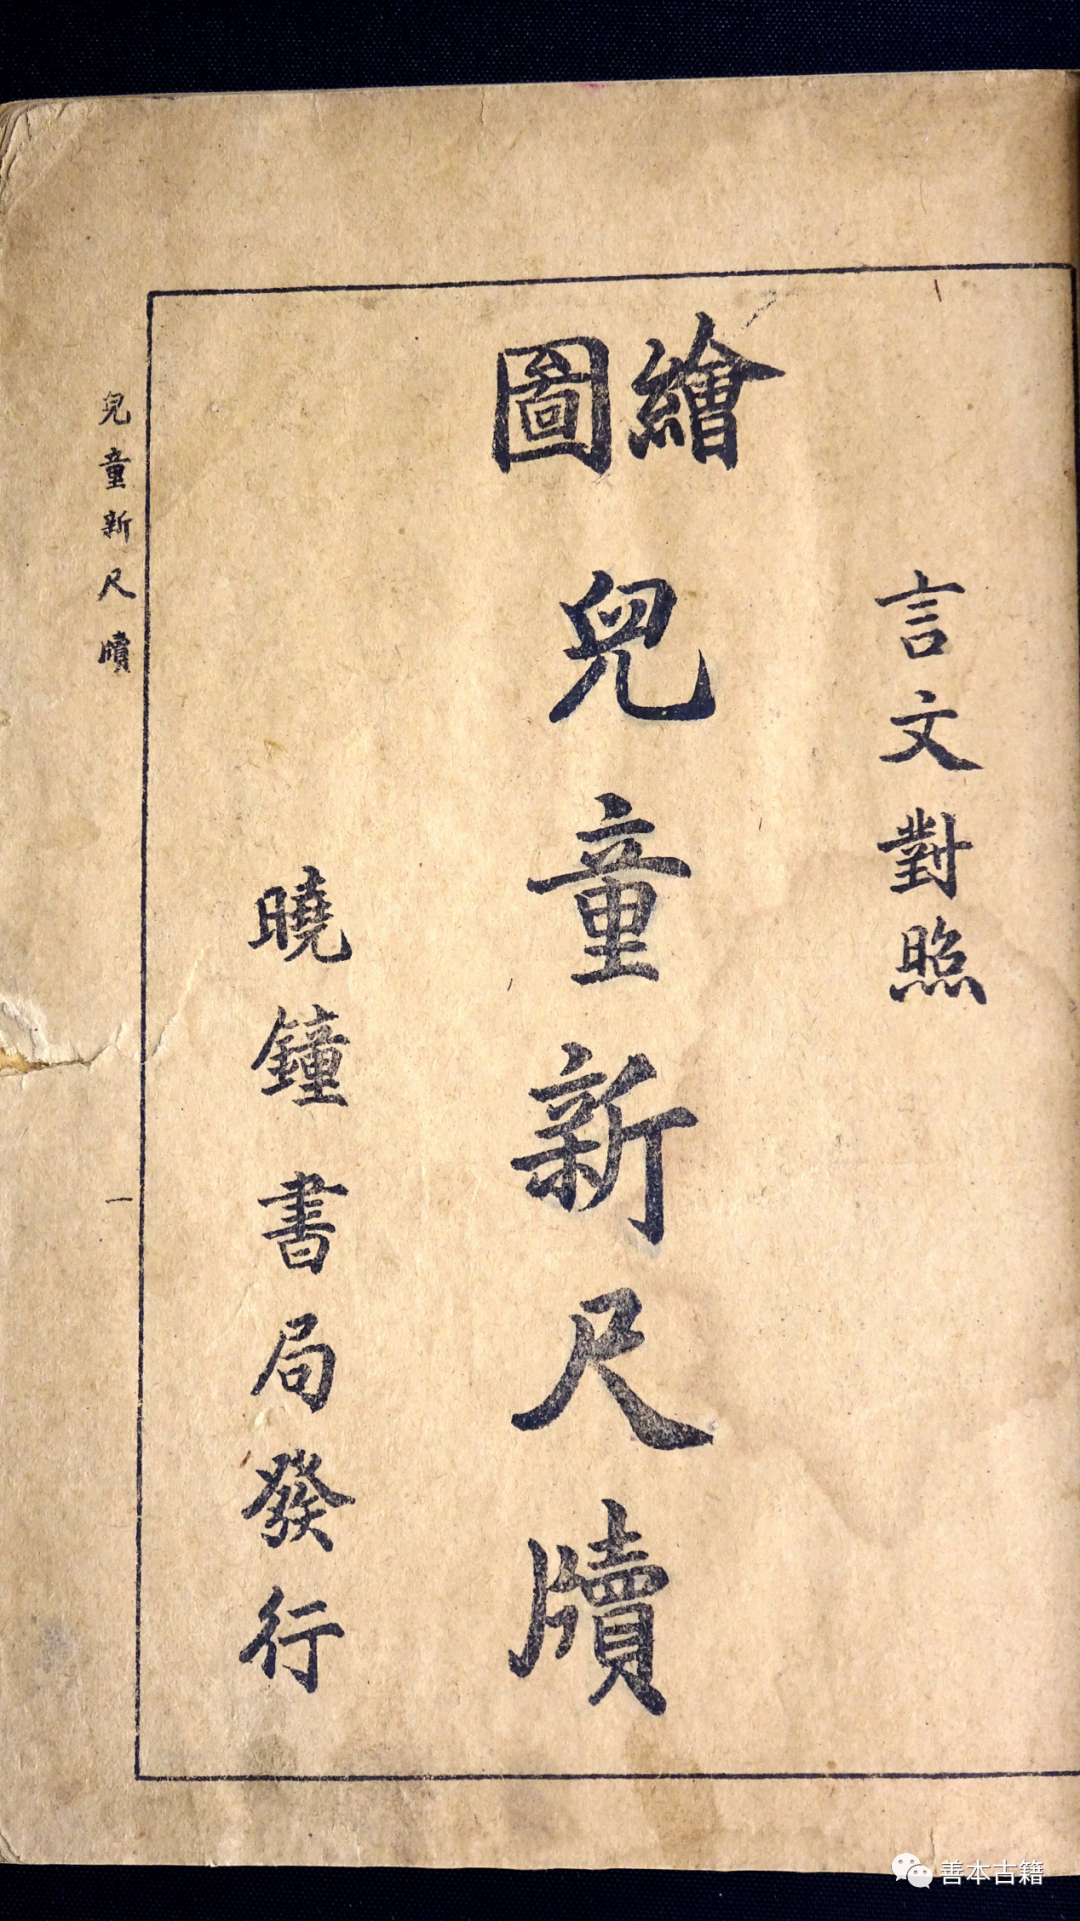 言文對照
繪圖
兒童新尺牘
曉鐘書局發行
兒童新尺牘
一
善本古籍